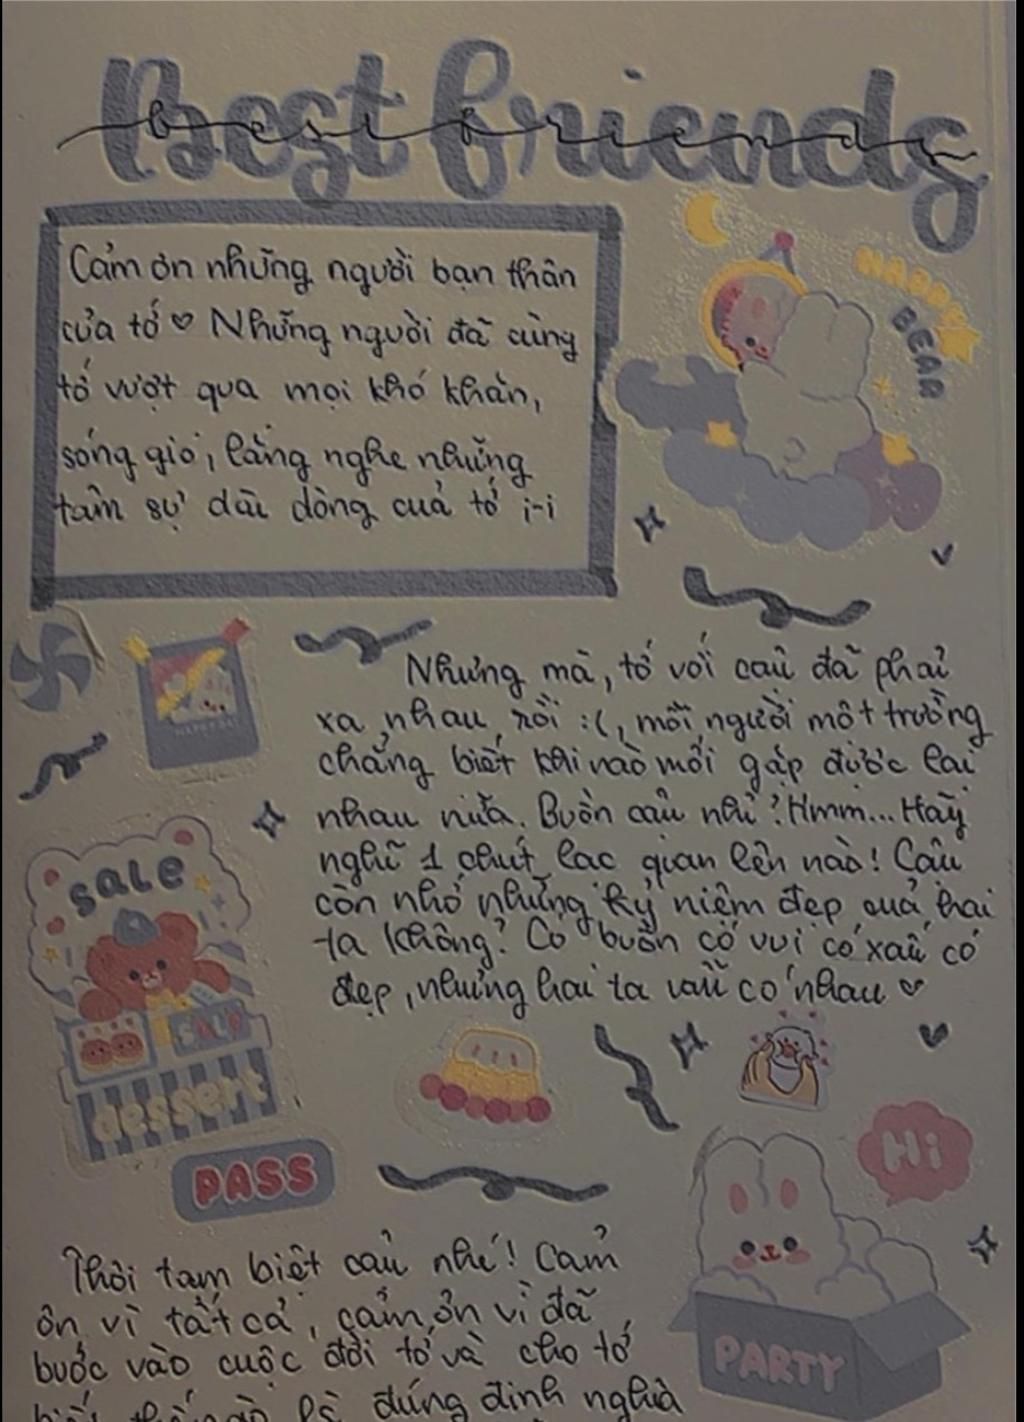 Best friends
best friends
Cảm ơn những người bạn thân
của tớ ♡ Những người đã cùng
tớ vượt qua mọi khó khăn,
sóng gió, lắng nghe những
tâm sự dài dòng của tớ i-i
HAPPY
BEAR
Nhưng mà, tớ với cậu đã phải
xa nhau rồi :(, mỗi người một trường
chẳng biết khi nào mới gặp được lại
nhau nữa. Buồn cậu nhỉ? Hmm... Hãy
nghĩ 1 chút lạc quan lên nào! Cậu
còn nhớ những kỷ niệm đẹp của hai
ta không? Có buồn có vui có xấu có
đẹp, nhưng hai ta vẫn có nhau ♡
sale
SALE
dessert
PASS
Hi
PARTY
Thôi tạm biệt cậu nhé! Cảm
ơn vì tất cả, cảm ơn vì đã
bước vào cuộc đời tớ và cho tớ
biết thế nào là đúng định nghĩa